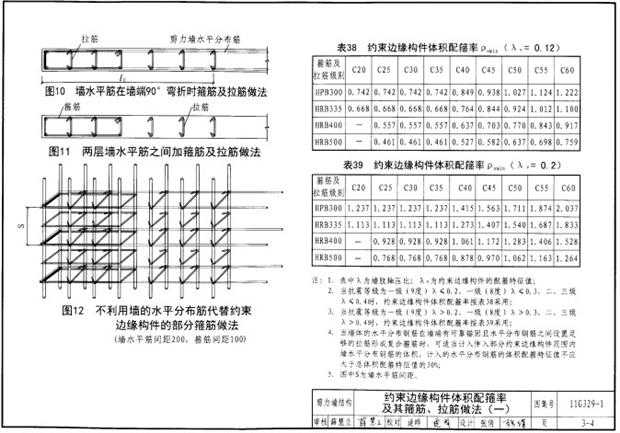 拉筋
剪力墙水平分布筋
图10 墙水平筋在墙端90°弯折时箍筋及拉筋做法
箍筋
拉筋
图11 两层墙水平筋之间加箍筋及拉筋做法
S
图12 不利用墙的水平分布筋代替约束
边缘构件的部分箍筋做法
(墙水平筋间距200，箍筋间距100)
表38 约束边缘构件体积配箍率ρvmin (λv= 0.12)
箍筋及拉筋级别 C20 C25 C30 C35 C40 C45 C50 C55 C60
HPB300 0.742 0.742 0.742 0.742 0.849 0.938 1.027 1.124 1.222
HRB335 0.668 0.668 0.668 0.668 0.764 0.844 0.924 1.012 1.100
HRB400 — 0.557 0.557 0.557 0.637 0.703 0.770 0.843 0.917
HRB500 — 0.461 0.461 0.461 0.527 0.582 0.637 0.698 0.759
表39 约束边缘构件体积配箍率ρvmin (λv= 0.2)
箍筋及拉筋级别 C20 C25 C30 C35 C40 C45 C50 C55 C60
HPB300 1.237 1.237 1.237 1.237 1.415 1.563 1.711 1.874 2.037
HRB335 1.113 1.113 1.113 1.113 1.273 1.407 1.540 1.687 1.833
HRB400 — 0.928 0.928 0.928 1.061 1.172 1.283 1.406 1.528
HRB500 — 0.768 0.768 0.768 0.878 0.970 1.062 1.163 1.264
注: 1. 表中λ为墙肢轴压比; λv为约束边缘构件的配箍特征值;
2. 当抗震等级为一级(9度)λ≤0.2, 一级(8度)λ≤0.3, 二、三级
λ≤0.4时, 约束边缘构件体积配箍率按表38采用;
3. 当抗震等级为一级(9度)λ>0.2, 一级(8度)λ>0.3, 二、三级
λ>0.4时, 约束边缘构件体积配箍率按表39采用;
4. 当墙体的水平分布钢筋在墙端有可靠锚固且水平分布钢筋之间设置足
够的拉筋形成复合箍筋时, 可适当计入伸入部分约束边缘构件范围内
墙水平分布钢筋的体积, 计入的水平分布钢筋的体积配箍特征值不应
大于总体积配箍特征值的30%;
5. 图中S为墙水平筋间距.
剪力墙结构
约束边缘构件体积配箍率
及其箍筋、拉筋做法(一)
图集号 11G329-1
审核 校对 设计 页 3-4